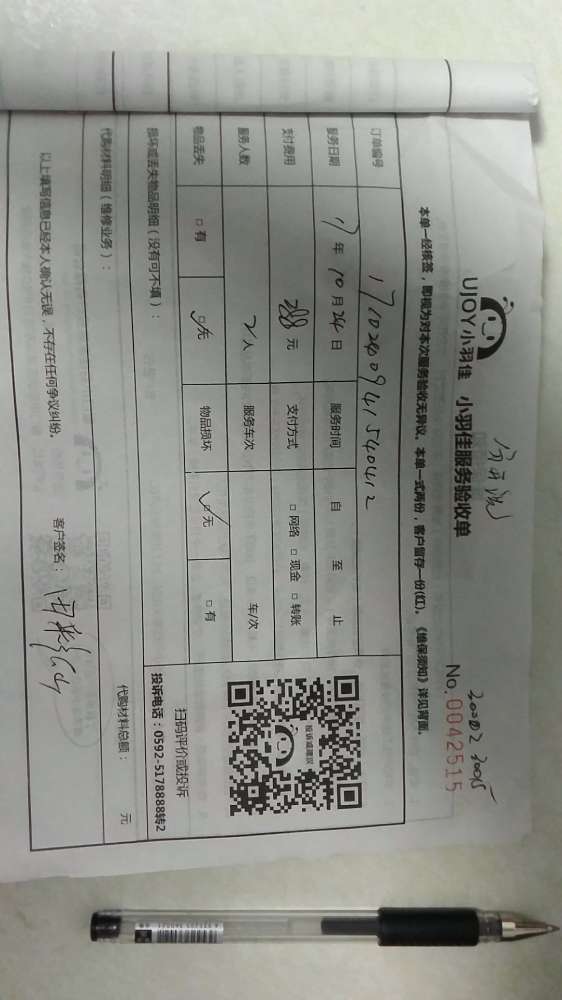 UJOY小羽佳 小羽佳服务验收单
No.0042515
本单一经接签,即视为对本次服务验收无异议。本单一式两份,客户留存一份(红)。《维保须知》详见背面。
订单编号 1710240941540412
服务日期 17年10月24日 服务时间 自 至 止
支付费用 288元 支付方式 □网络 □现金 □转账
服务人数 2人 服务车次 车/次
物品丢失 □有 □无 物品损坏 □无 □有
损坏或丢失物品明细(没有可不填):
投诉或建议
扫码评价或投诉
投诉电话:0592-5178888转2
代购材料明细(维修业务):
代购材料总额: 元
以上填写信息已经本人确认无误,不存在任何争议纠纷。
客户签名: